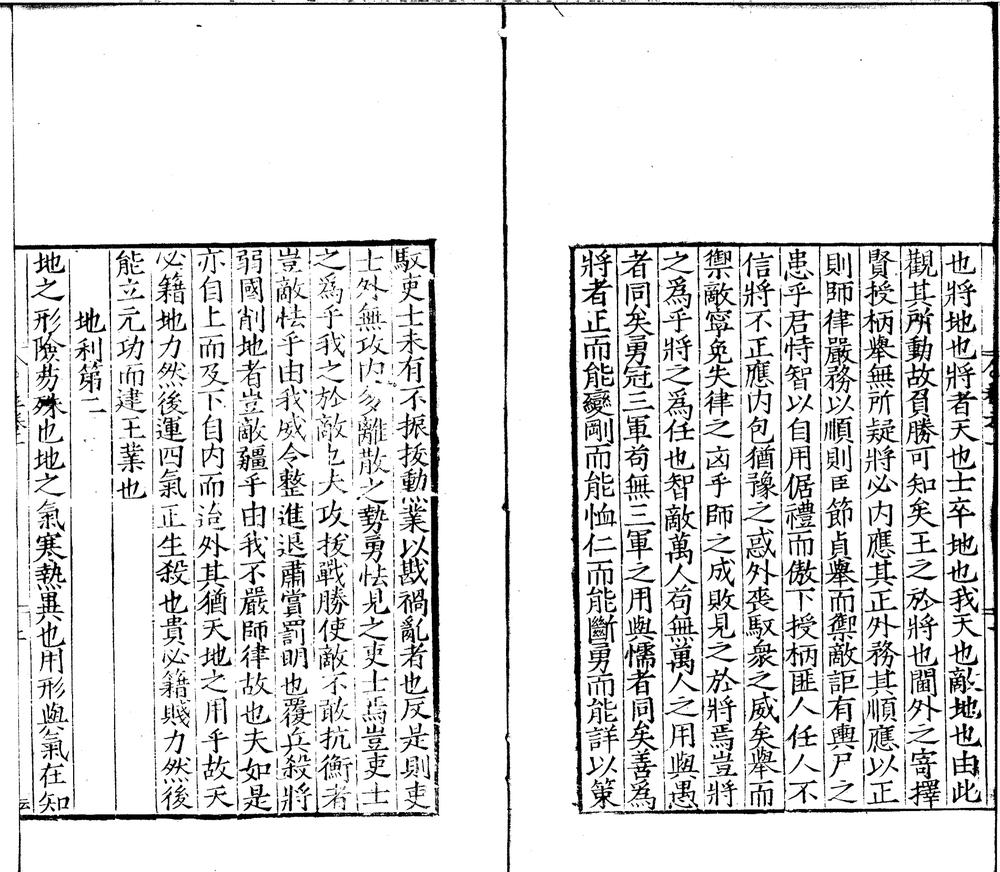 也將地也將者天也士卒地也我天也敵地也由此
觀其所動故負勝可知矣王之於將也閫外之寄擇
賢授柄舉無所疑將必内應其正外務其順應以正
則師律嚴務以順則臣節貞舉而禦敵詎有輿尸之
患乎君恃智以自用倨禮而傲下授柄匪人任人不
信將不正應内包猶豫之惑外喪馭衆之威矣舉而
禦敵寧免失律之凶乎師之成敗見之於將焉豈將
之為乎將之為任也智敵萬人苟無萬人之用與愚
者同矣勇冠三軍苟無三軍之用與懦者同矣善為
將者正而能變剛而能恤仁而能斷勇而能詳以策
馭吏士未有不振拔動業以戡禍亂者也反是則吏
士外無攻内多離散之勢勇怯見之吏士焉豈吏士
之為乎我之於敵也夫攻拔戰勝使敵不敢抗衡者
豈敵怯乎由我威令整進退肅賞罰明也覆兵殺將
弱國削地者豈敵彊乎由我不嚴師律故也夫如是
亦自上而及下自内而治外其猶天地之用乎故天
必籍地力然後運四氣正生殺也貴必籍賤力然後
能立元功而建王業也
地利第二
地之形險易殊也地之氣寒熱異也用形與氣在知